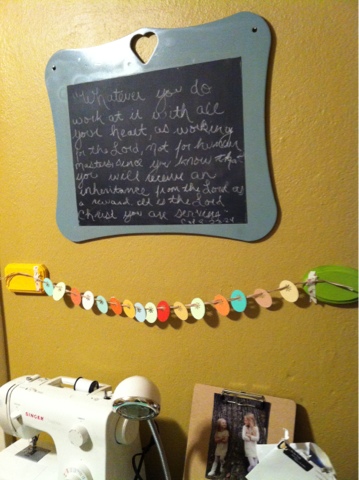 "Whatever you do
work at it with all
your heart, as working
for the Lord, not for human
masters, since you know that
you will receive an
inheritance from the Lord as
a reward. It is the Lord
Christ you are serving"
Col 3:23-24
SINGER